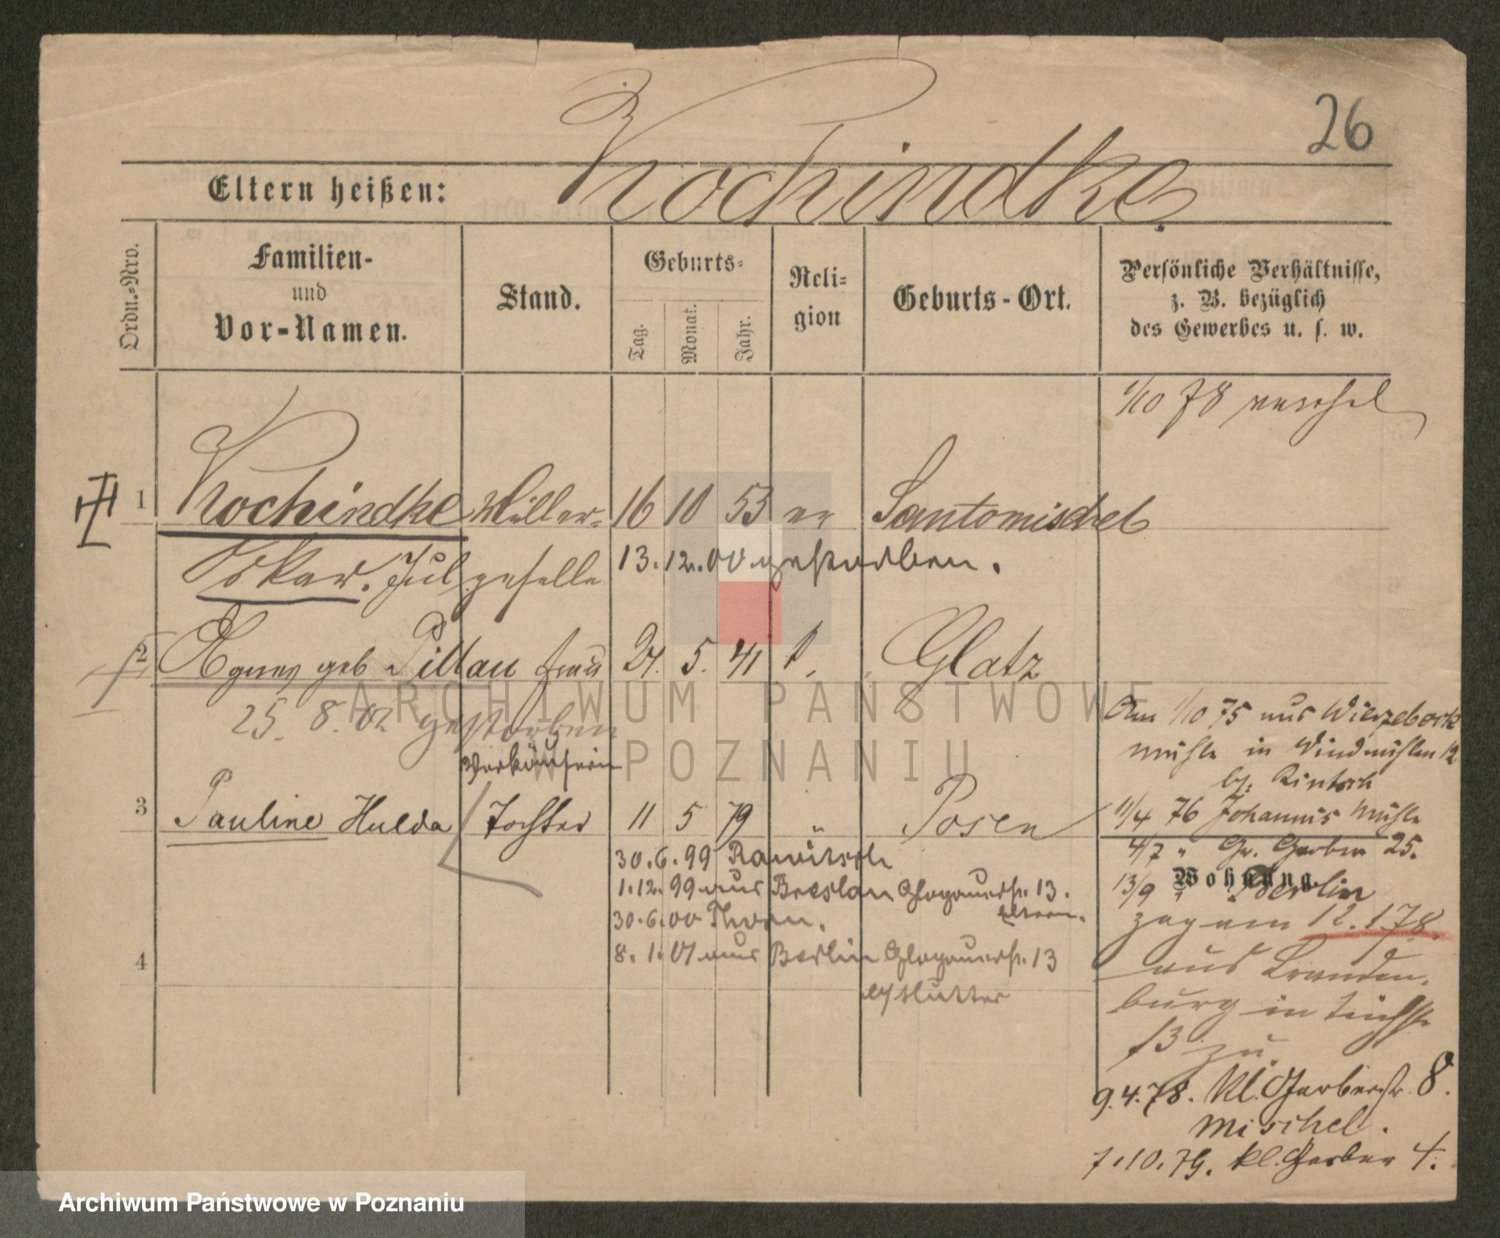 26
Eltern heißen: Kochindke
Ordn.-Nro.
Familien-
und
Vor-Namen.
Stand.
Geburts-
Tag.
Monat.
Jahr.
Reli-
gion
Geburts-Ort.
Persönliche Verhältnisse,
z. B. bezüglich
des Gewerbes u. s. w.
1/10 78
1 Kochindke Müller- 16 10 53 ev Santomischel
Oskar. Jul geselle 13.12.00 gestorben.
2 Agnes geb Pillau Frau 24. 5. 41 Glatz
25. 8. 02 gestorben
Verkäuferin
3 Pauline Hulda Tochter 11 5 79 " Posen
30.6.99 Rawitsch
1.12.99 aus Breslau Glogauerstr. 13.
Eltern.
30.6.00 Thorn.
8.1.01 aus Berlin Glogauerstr. 13
b/Mutter
4
Am 1/10 75 aus Wierzebock
mühle in Windmühlen 12
b/.
11/4 76 Johannis Mühle
4/7 " Gr. Gerber 25.
Wohnung
13/9 " Berlin
zog am 12.1.78.
aus Branden-
burg in
13 zu.
9.4.78. Kl. Gerberstr. 8.
Mischel.
7.10.79. kl. Gerber 4.
ARCHIWUM PAŃSTWOWE
W POZNANIU
Archiwum Państwowe w Poznaniu